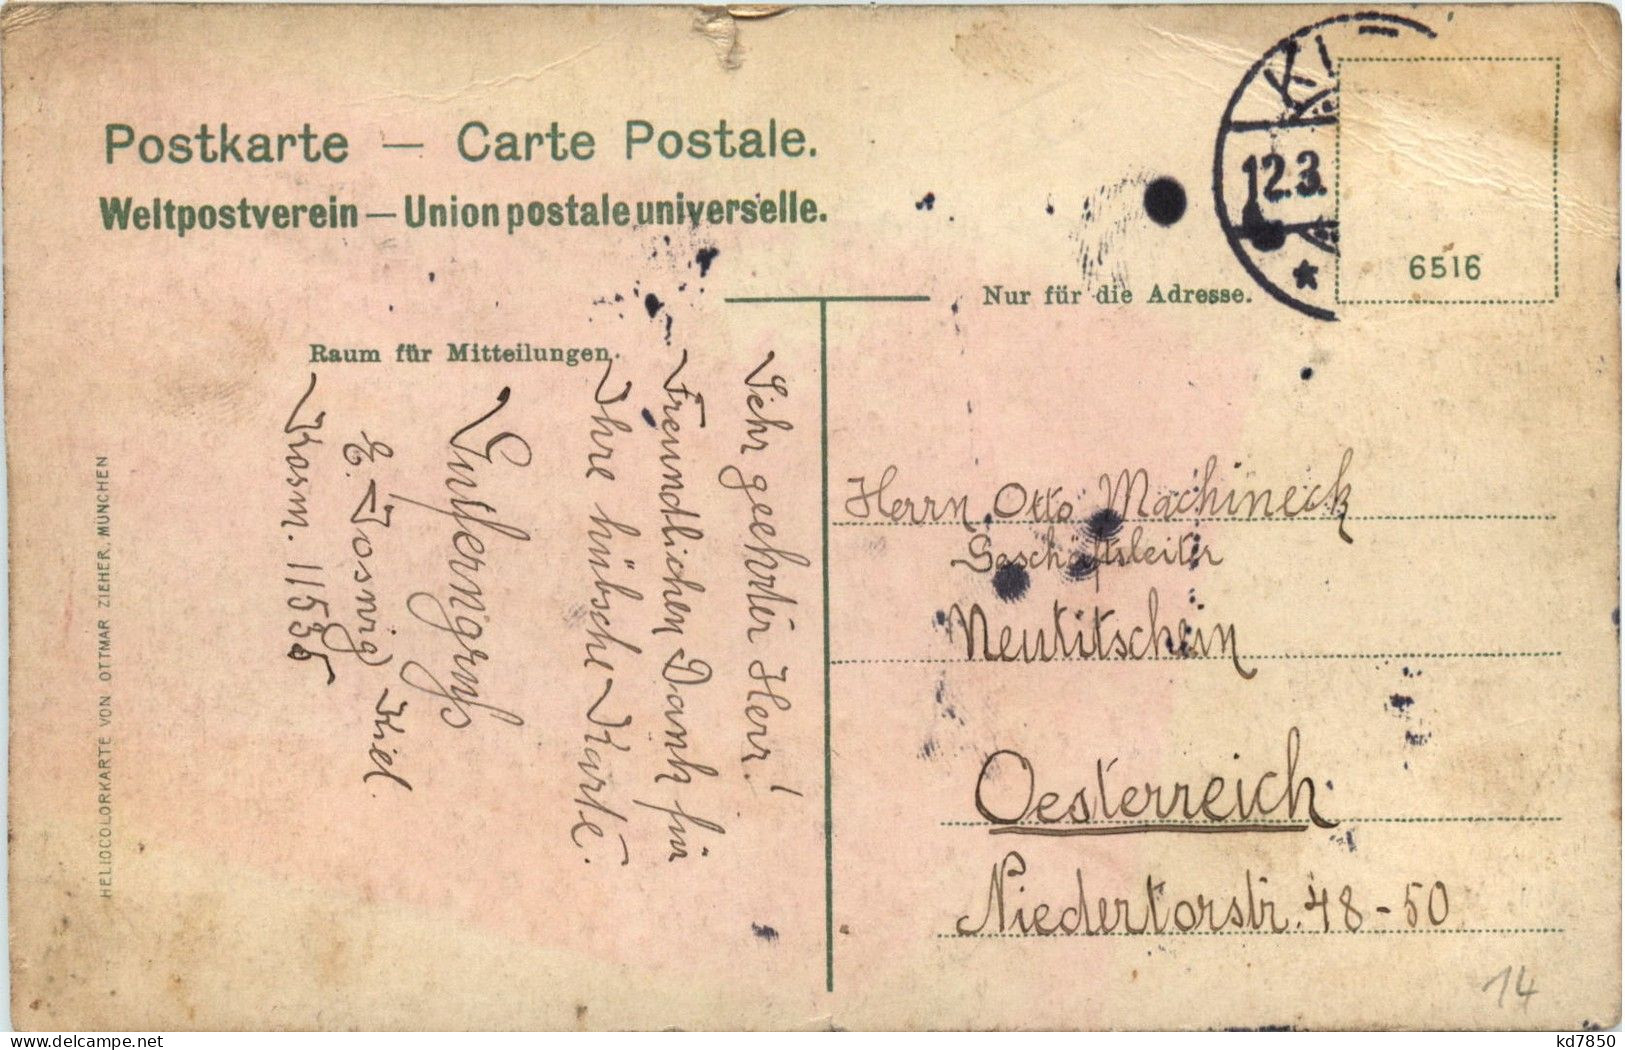 Postkarte — Carte Postale.
Weltpostverein — Union postale universelle.
KI
12.3.
6516
Nur für die Adresse.
Raum für Mitteilungen.
Sehr geehrter Herr!
Freundlichen Dank für
Ihre hübsche Karte.
E. Kiel.
Kosm. 11535
Herrn Otto Machineck
Geschäftsleiter
Neutitschein
Oesterreich.
Niedertorstr. 48-50
14
HELIOCOLORKARTE VON OTTMAR ZIEHER, MÜNCHEN
kd7850